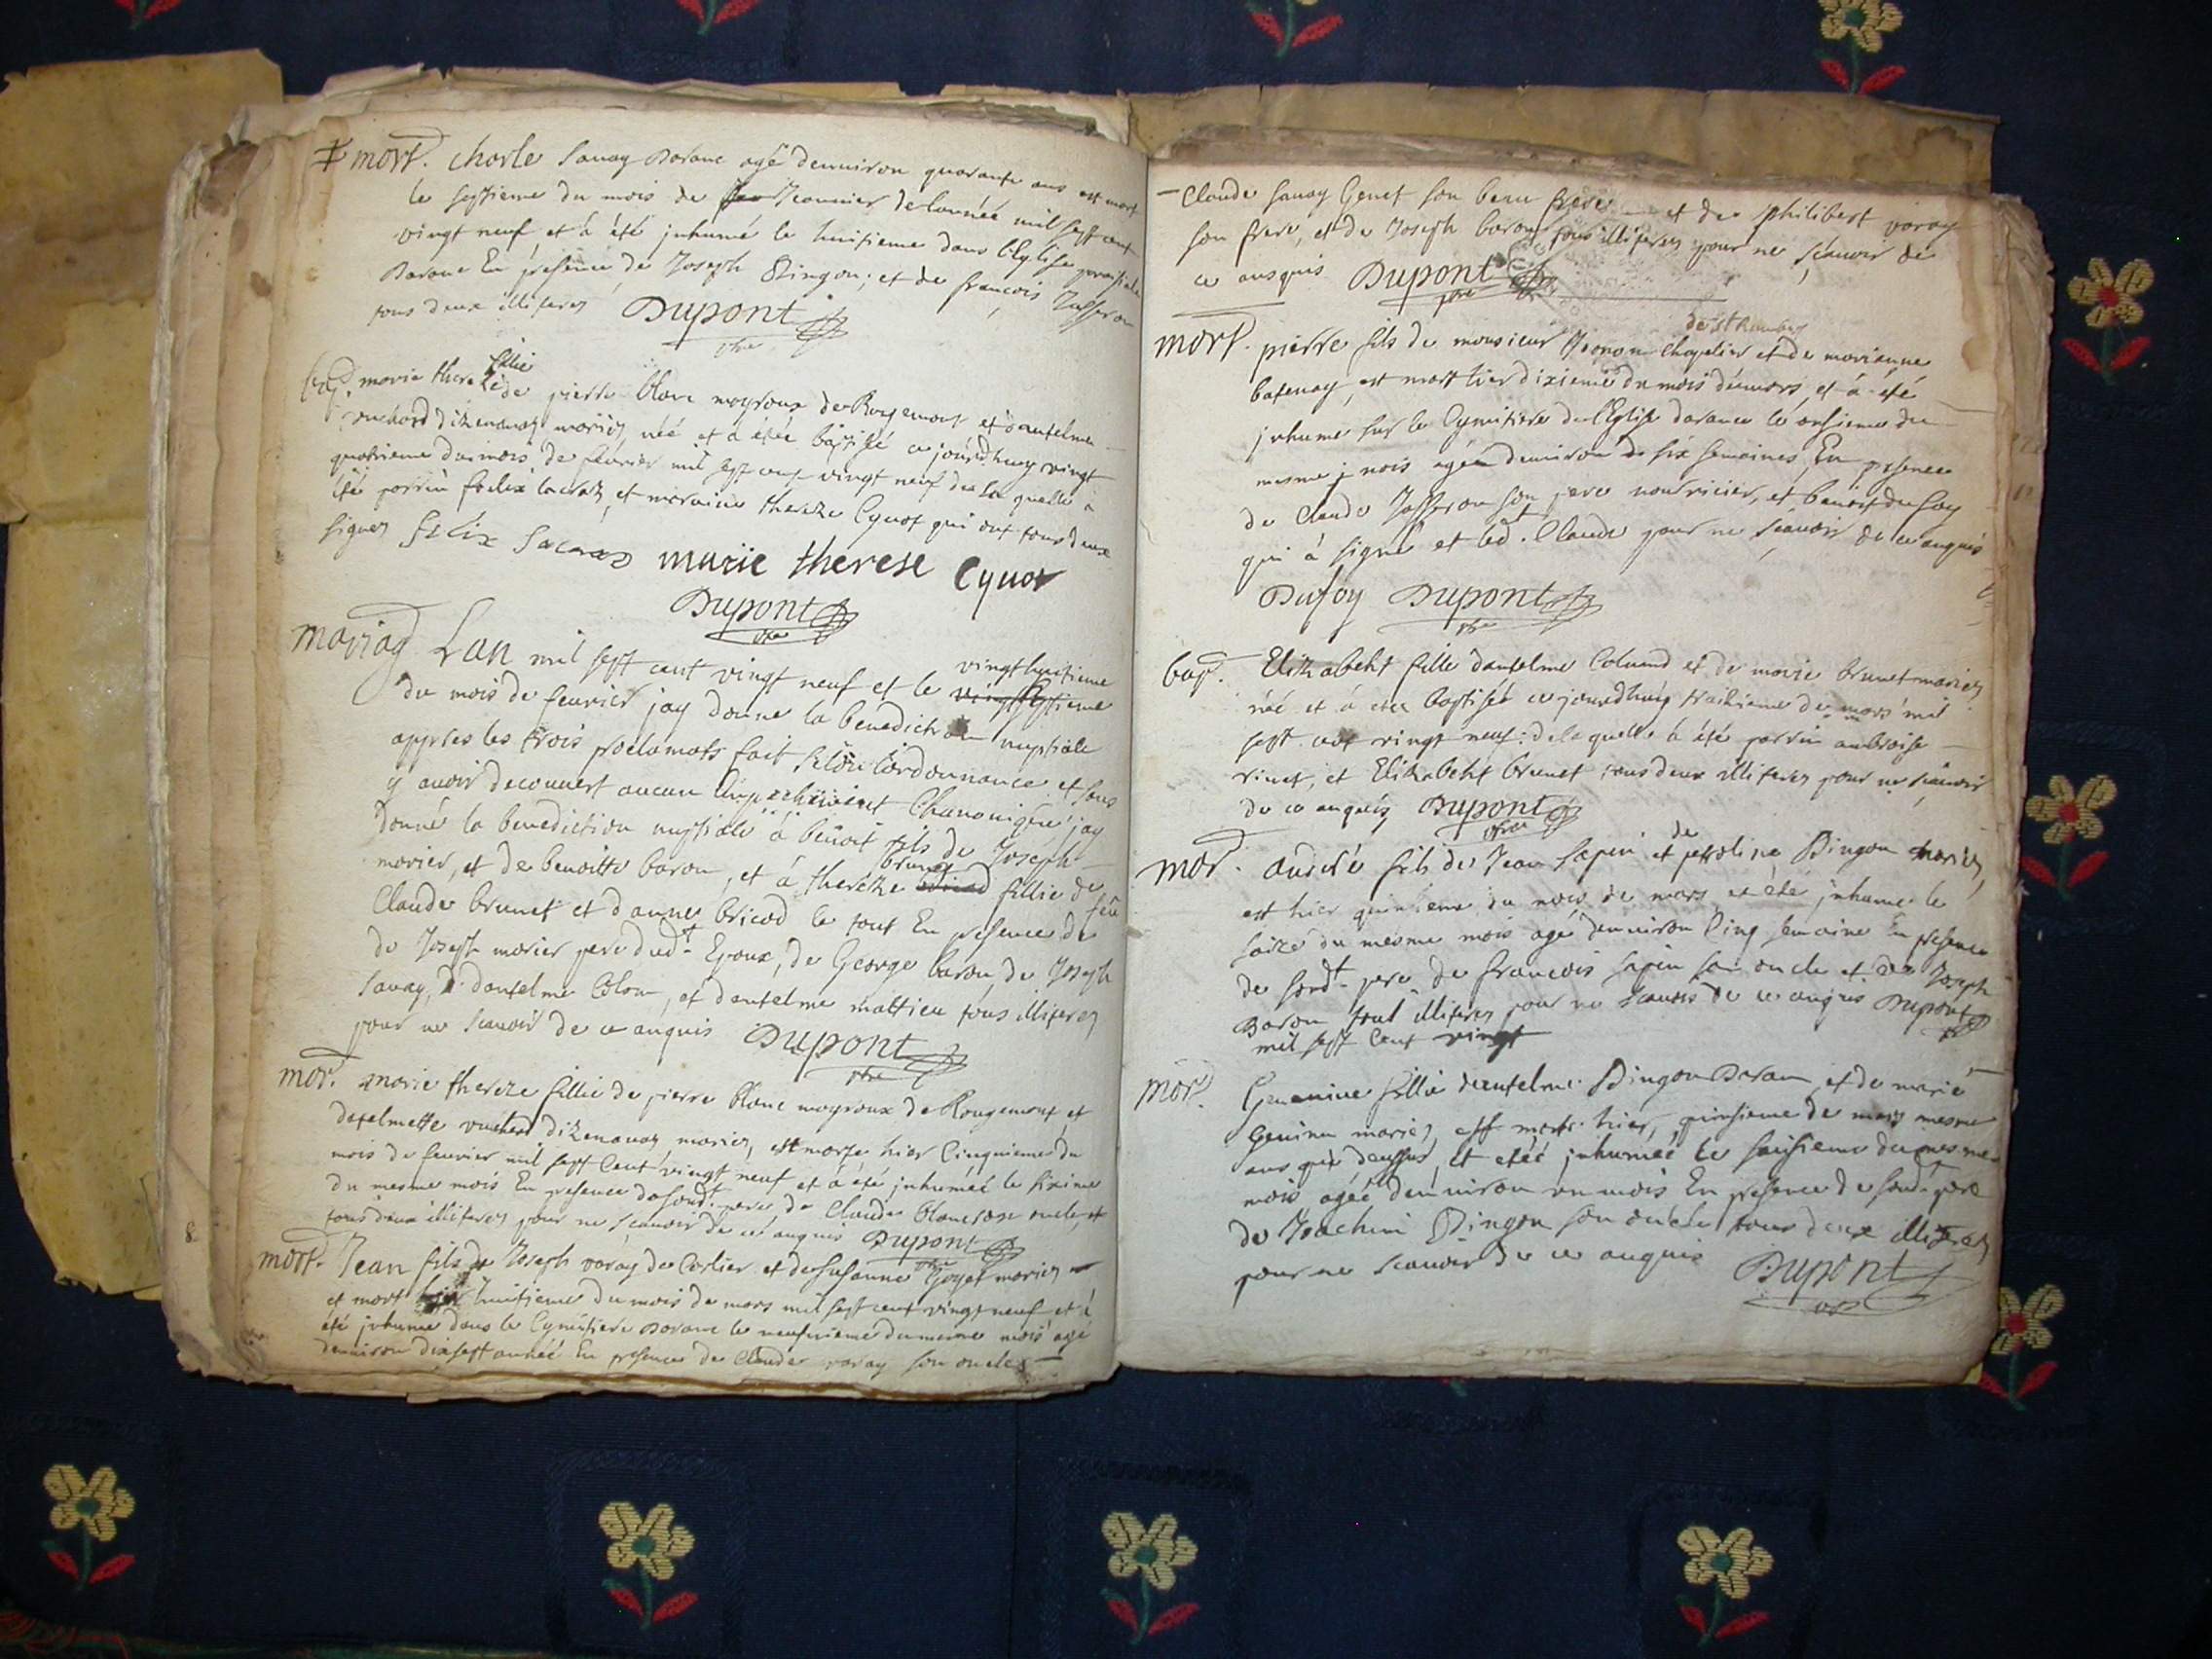 mort. charle savay Darane agé denuiron quarante ans est mort
le septieme du mois de Jeanuier de lannéé mil sept cent
vingt neuf et à été jnhumé le huitieme dans l'Eglise
Darane En présence de Joseph Dingon, et de françois Jasseron
tous deux illiteres Dupont
bap. marie thereze fillie de pierre blanc moyroux de Rogemont et dantelme
mariés, néé et à étéé baptisé ce jourdhuy vingt
quatrieme du mois de feburier mil sept cent vingt neuf de la quelle à
été parrin foelix lacraz, et marraine thereze Cyuot qui ont tous deux
signes Felix Lacraz marie therese Cyuot
Dupont
mariag Lan mil sept cent vingt neuf et le vingthuitieme
du mois de feurier jay donné la bénédiction nuptiale
apprès les trois proclamats fait selon lordonnance et sans
y auoir decouuert aucun Empechement Chanonique jay
donné la benediction nuptiale à benoit fils de Joseph
morier, et de benoitte baron, et à thereze brunet fillie de feu
Claude brunet et danne bricod le tout En presence de
de Joseph morier pere dudt. Epoux, de George baron, de Joseph
savay, dantelme Colom, et dantelme mattieu tous illiteres
pour ne scauoir de ce anquis Dupont
mor. marie thereze fillie de pierre blanc moyroux de Rougemont et
mariés, est morte hier Cinquieme du
mois de feurier mil sept Cent vingt neuf et à été jnhuméé le sixime
du mesme mois En presence de sondt. pere, de Claude blanc son oncle, et
tous deux illiteres pour ne scauoir de ce anquis Dupont
mort. Jean fils de Joseph varay de Corlier et de susanne Goyet mariés
et mort hier huitieme du mois de mars mil sept cent vingt neuf et à
été jnhumé dans le Cymitiere Darane le neufuieme du mesme mois agé
denuiron dixsept annéé En presence de Claude varay son oncle,
Claude savay Genet son beau frere et de philibert varay
son frere, et de Joseph baron tous illiteres pour ne scauoir de
ce anquis Dupont
de st Rambert
mort. pierre fils de monsieur Chapelier et de marianne
batenay, est mort hier dixieme du mois de mars, et à été
jnhumé sur le Cymitiere de l'Eglise darance le onsieme du
mesme mois agé denuiron de six semaines En presence
de Claude Jasseron son pere nourricier, et benoit dufay
qui à signé et ledt. Claude pour ne scauoir de ce anquis
Dufay Dupont
bap. Elizabeht fille dantelme Coloumd et de marie brunet mariés
néé et à etéé baptiséé ce jourdhuy traisieme de mars mil
sept cent vingt neuf: de la quelle à été parrin anbroise
vinet, et Elizabeht brunet tous deux illiteres pour ne scauoir
de ce anquis Dupont
mor. andrée fils de Jean sapin et de petroline Dingon mariés,
est hier quinsieme du mois de mars et été jnhumé le
saize du mesme mois agé denuiron Cinq semaine En presence
de sondt. pere de francois sapin son oncle et de Joseph
Baron tout illiteres pour ne scauois de ce anquis Dupont
mil sept Cent vingt
mor. fillie dantelme Dingon Daran et de marie
Geninn mariés, est morte hier, quinsieme de mars mesme
ans que dessus, et etéé jnhuméé le saisieme du mesme
mois agéé denuiron un mois En presence de sondt. pere
de Joachim Dingon son oncle tous deux illiteres
pour ne scauoir de ce anquis Dupont